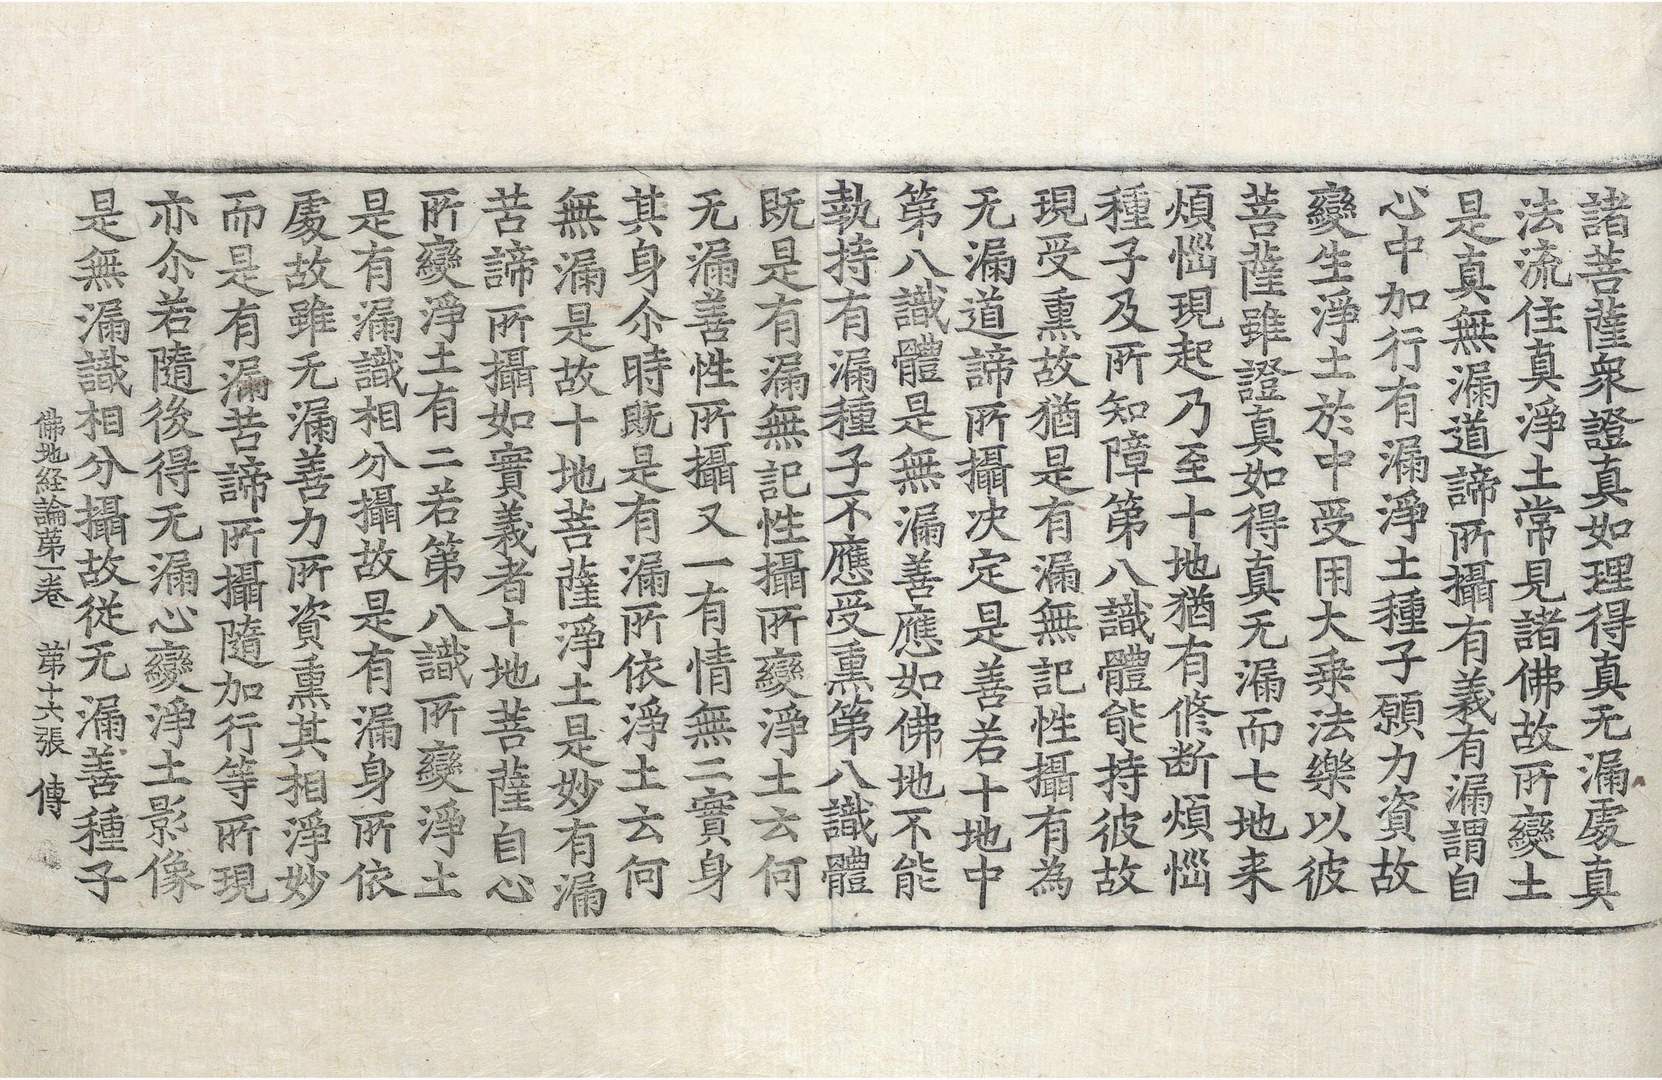 諸菩薩衆證真如理得真无漏處真
法流住真淨土常見諸佛故所變土
是真無漏道諦所攝有義有漏謂自
心中加行有漏淨土種子願力資故
變生淨土於中受用大乗法樂以彼
菩薩雖證真如得真无漏而七地来
煩惱現起乃至十地猶有修断煩惱
種子及所知障第八識體能持彼故
現受熏故猶是有漏無記性攝有為
无漏道諦所攝决定是善若十地中
第八識體是無漏善應如佛地不能
執持有漏種子不應受熏第八識體
既是有漏無記性攝所變淨土云何
无漏善性所攝又一有情無二實身
其身尒時既是有漏所依淨土云何
無漏是故十地菩薩淨土是妙有漏
苦諦所攝如實義者十地菩薩自心
所變淨土有二若第八識所變淨土
是有漏識相分攝故是有漏身所依
處故雖无漏善力所資熏其相淨妙
而是有漏苦諦所攝隨加行等所現
亦尒若隨後得无漏心變淨土影像
是無漏識相分攝故従无漏善種子
佛地経論苐一卷 苐十六張 傳